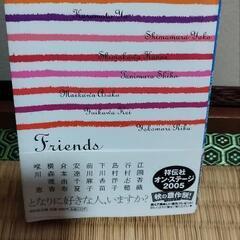 Kuramoto Yu
Shimamura Yoko
Shimokawa Kanae
Tanimura Shiho
Maekawa Asako
Yuikawa Kei
Yokomori Rika
Friends
江國香織
谷村志穂
島村洋子
下川香苗
前川麻子
安達千夏
倉本由布
横森理香
唯川恵
となりに好きな人、いますか?
祥伝社
オンステージ
2005
秋の豊作祭!